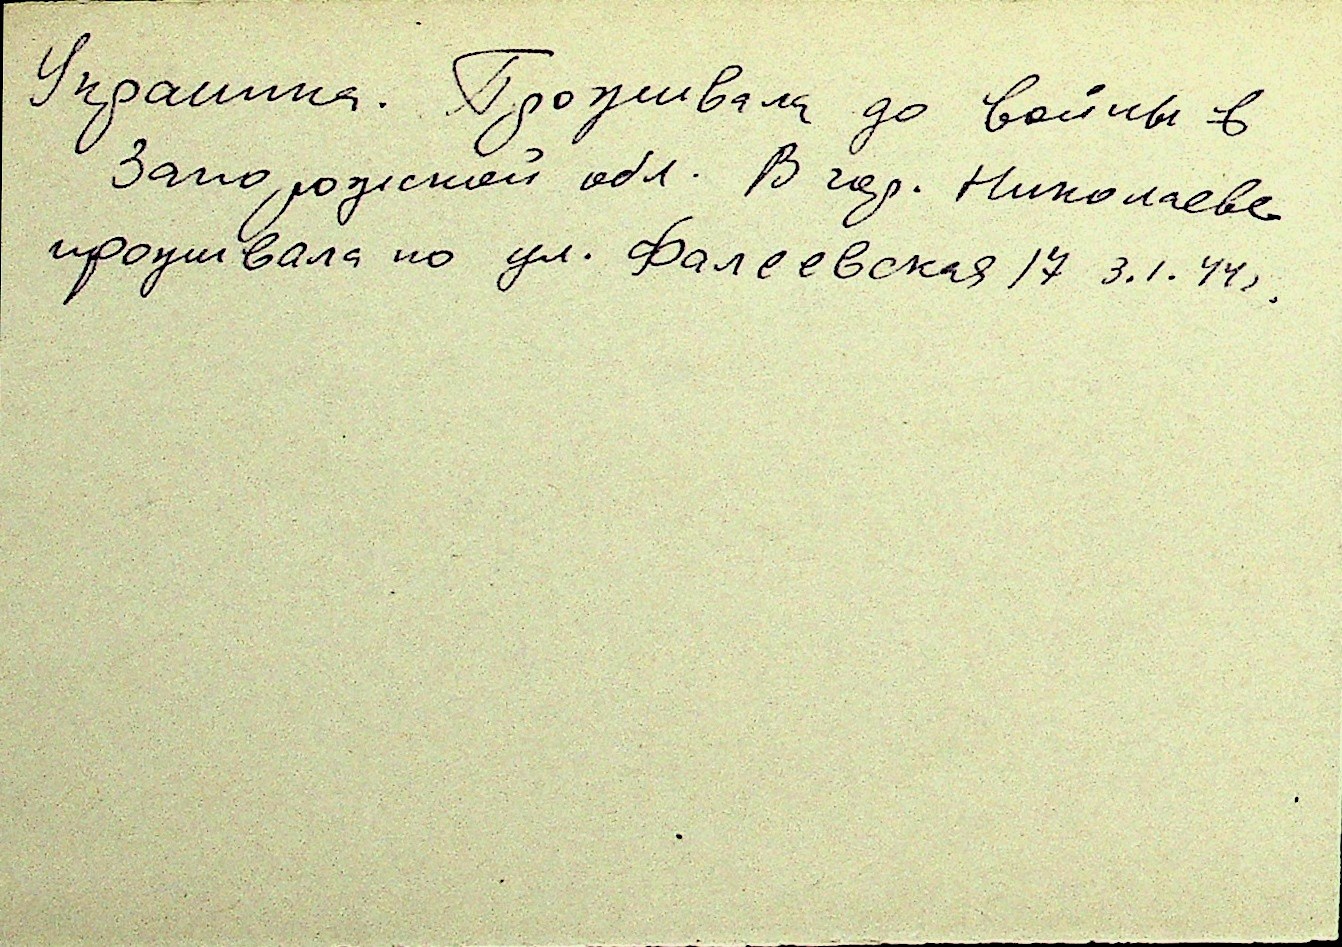 Украинка. Проживала до войны в
Запорожской обл. В гор. Николаеве
проживала по ул. Фалеевская 17 3.1.44г.